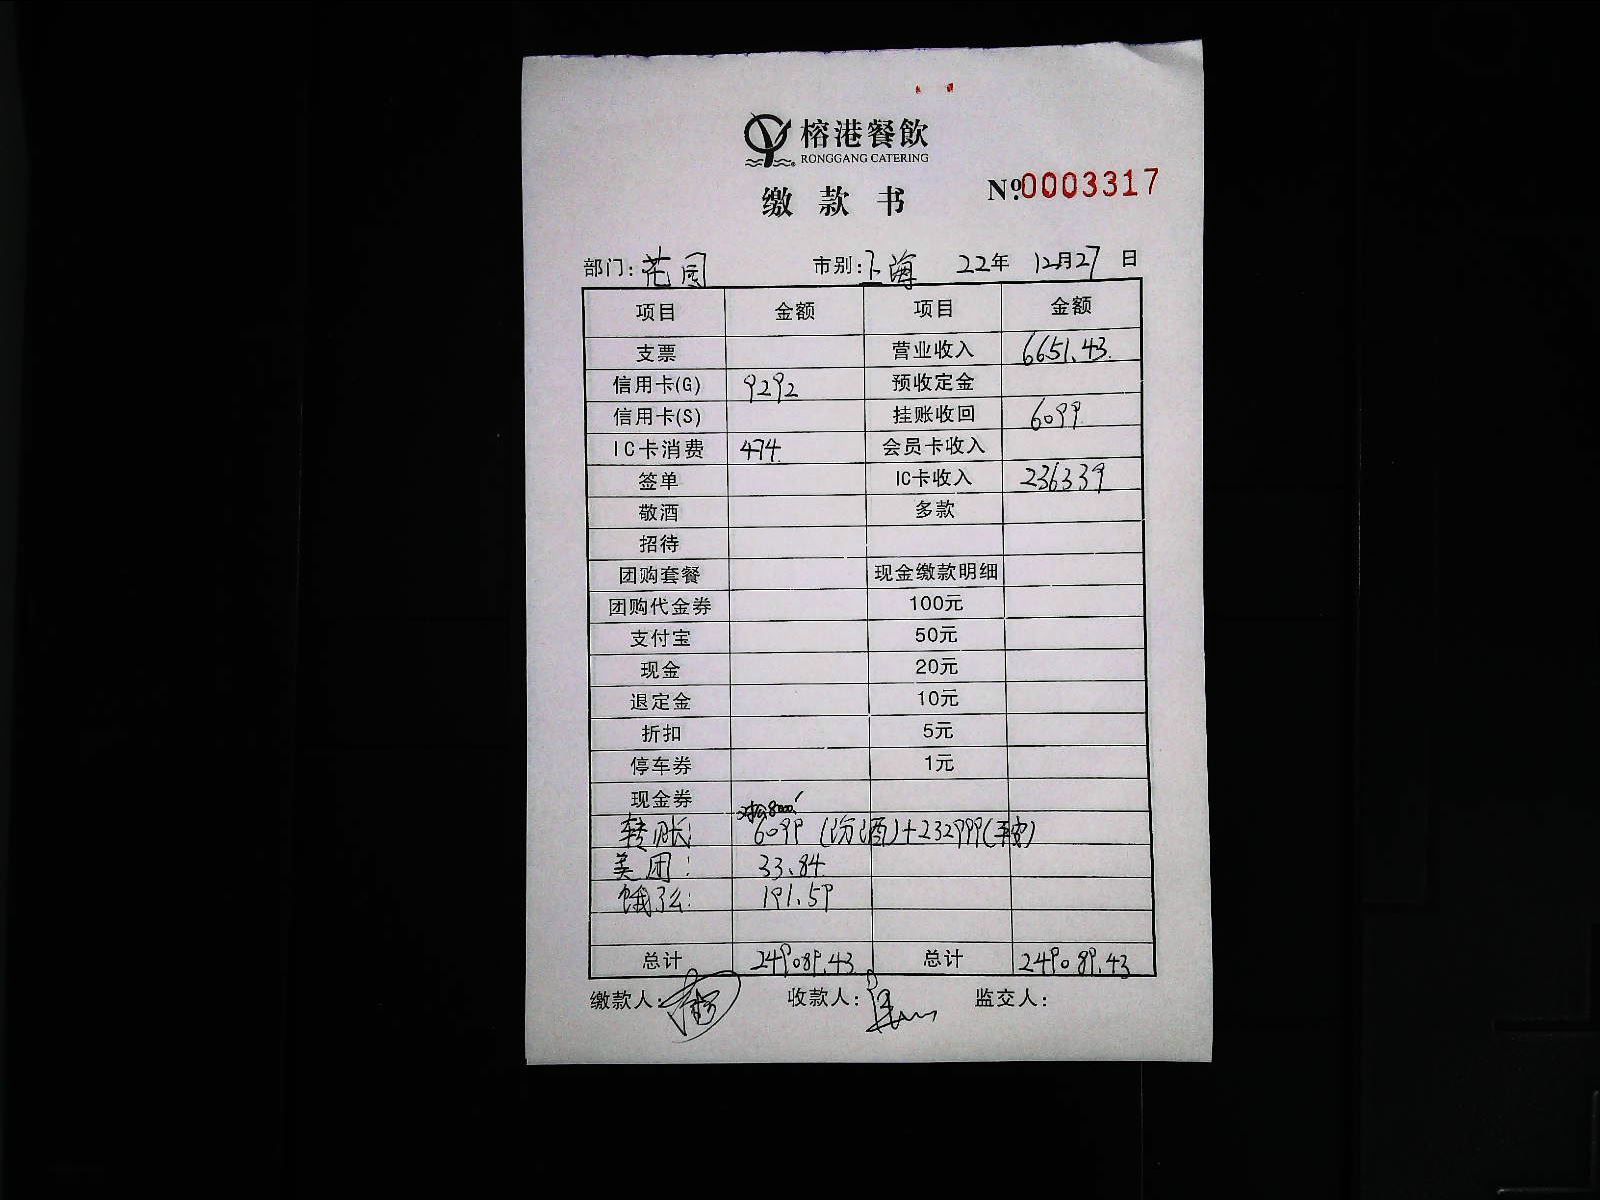 榕港餐飲
RONGGANG CATERING
缴款书
№0003317
部门：花园 市别：上海 22年12月27日
项目 金额 项目 金额
支票 营业收入 6651.43
信用卡(G) 9292 预收定金
信用卡(S) 挂账收回 6099
IC卡消费 474 会员卡收入
签单 IC卡收入 236339
敬酒 多款
招待
团购套餐 现金缴款明细
团购代金券 100元
支付宝 50元
现金 20元
退定金 10元
折扣 5元
停车券 1元
现金券
转账： 6099（汾酒）+232999
美团： 33.84
饿了么： 191.59
总计 249089.43 总计 249089.43
缴款人： 收款人： 监交人：